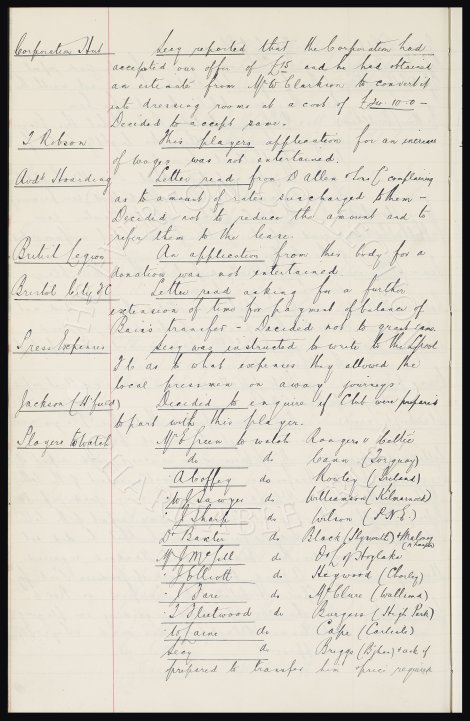 Corporation Hut Secy reported that the Corporation had
accepted our offer of £15 and he had obtained
an estimate from Mr W Clarkson to convert it
into dressing rooms at a cost of £20-10-0 -
Decided to accept same.
T Robson This players application for an increase
of wages was not entertained.
Advt Hoarding Letter read from D Allen & Sons complaining
as to amount of rates surcharged to them -
Decided not to reduce the amount and to
refer them to the lease.
British Legion An application from this body for a
donation was not entertained
Bristol City FC Letter read asking for a further
extension of time for payment of balance of
Bain's transfer - Decided not to grant same.
Press Expenses Secy was instructed to write to the L'pool
F.C as to what expenses they allowed the
local pressmen on away journeys
Jackson (H'field) Decided to enquire if Club were prepared
to part with this player.
Players to Watch Mr E Green to watch Rangers v Celtic
do do Cann (Torquay)
" A Coffey do Rowley (Ireland)
" W J Sawyer do Williamson (Kilmarnock)
" J Sharp do Wilson (P.N.E.)
Dr Baxter do Black (Flywold) & Maloney
Mr J McGill do of Hoylake
" J Elliott do Haywood (Chorley)
" J Fare do McClure (Wallsend)
" T Fleetwood do Burgess (High Park)
" W Cairns do Cape (Carlisle)
Secy do Briggs & ask if
prepared to transfer him & price required